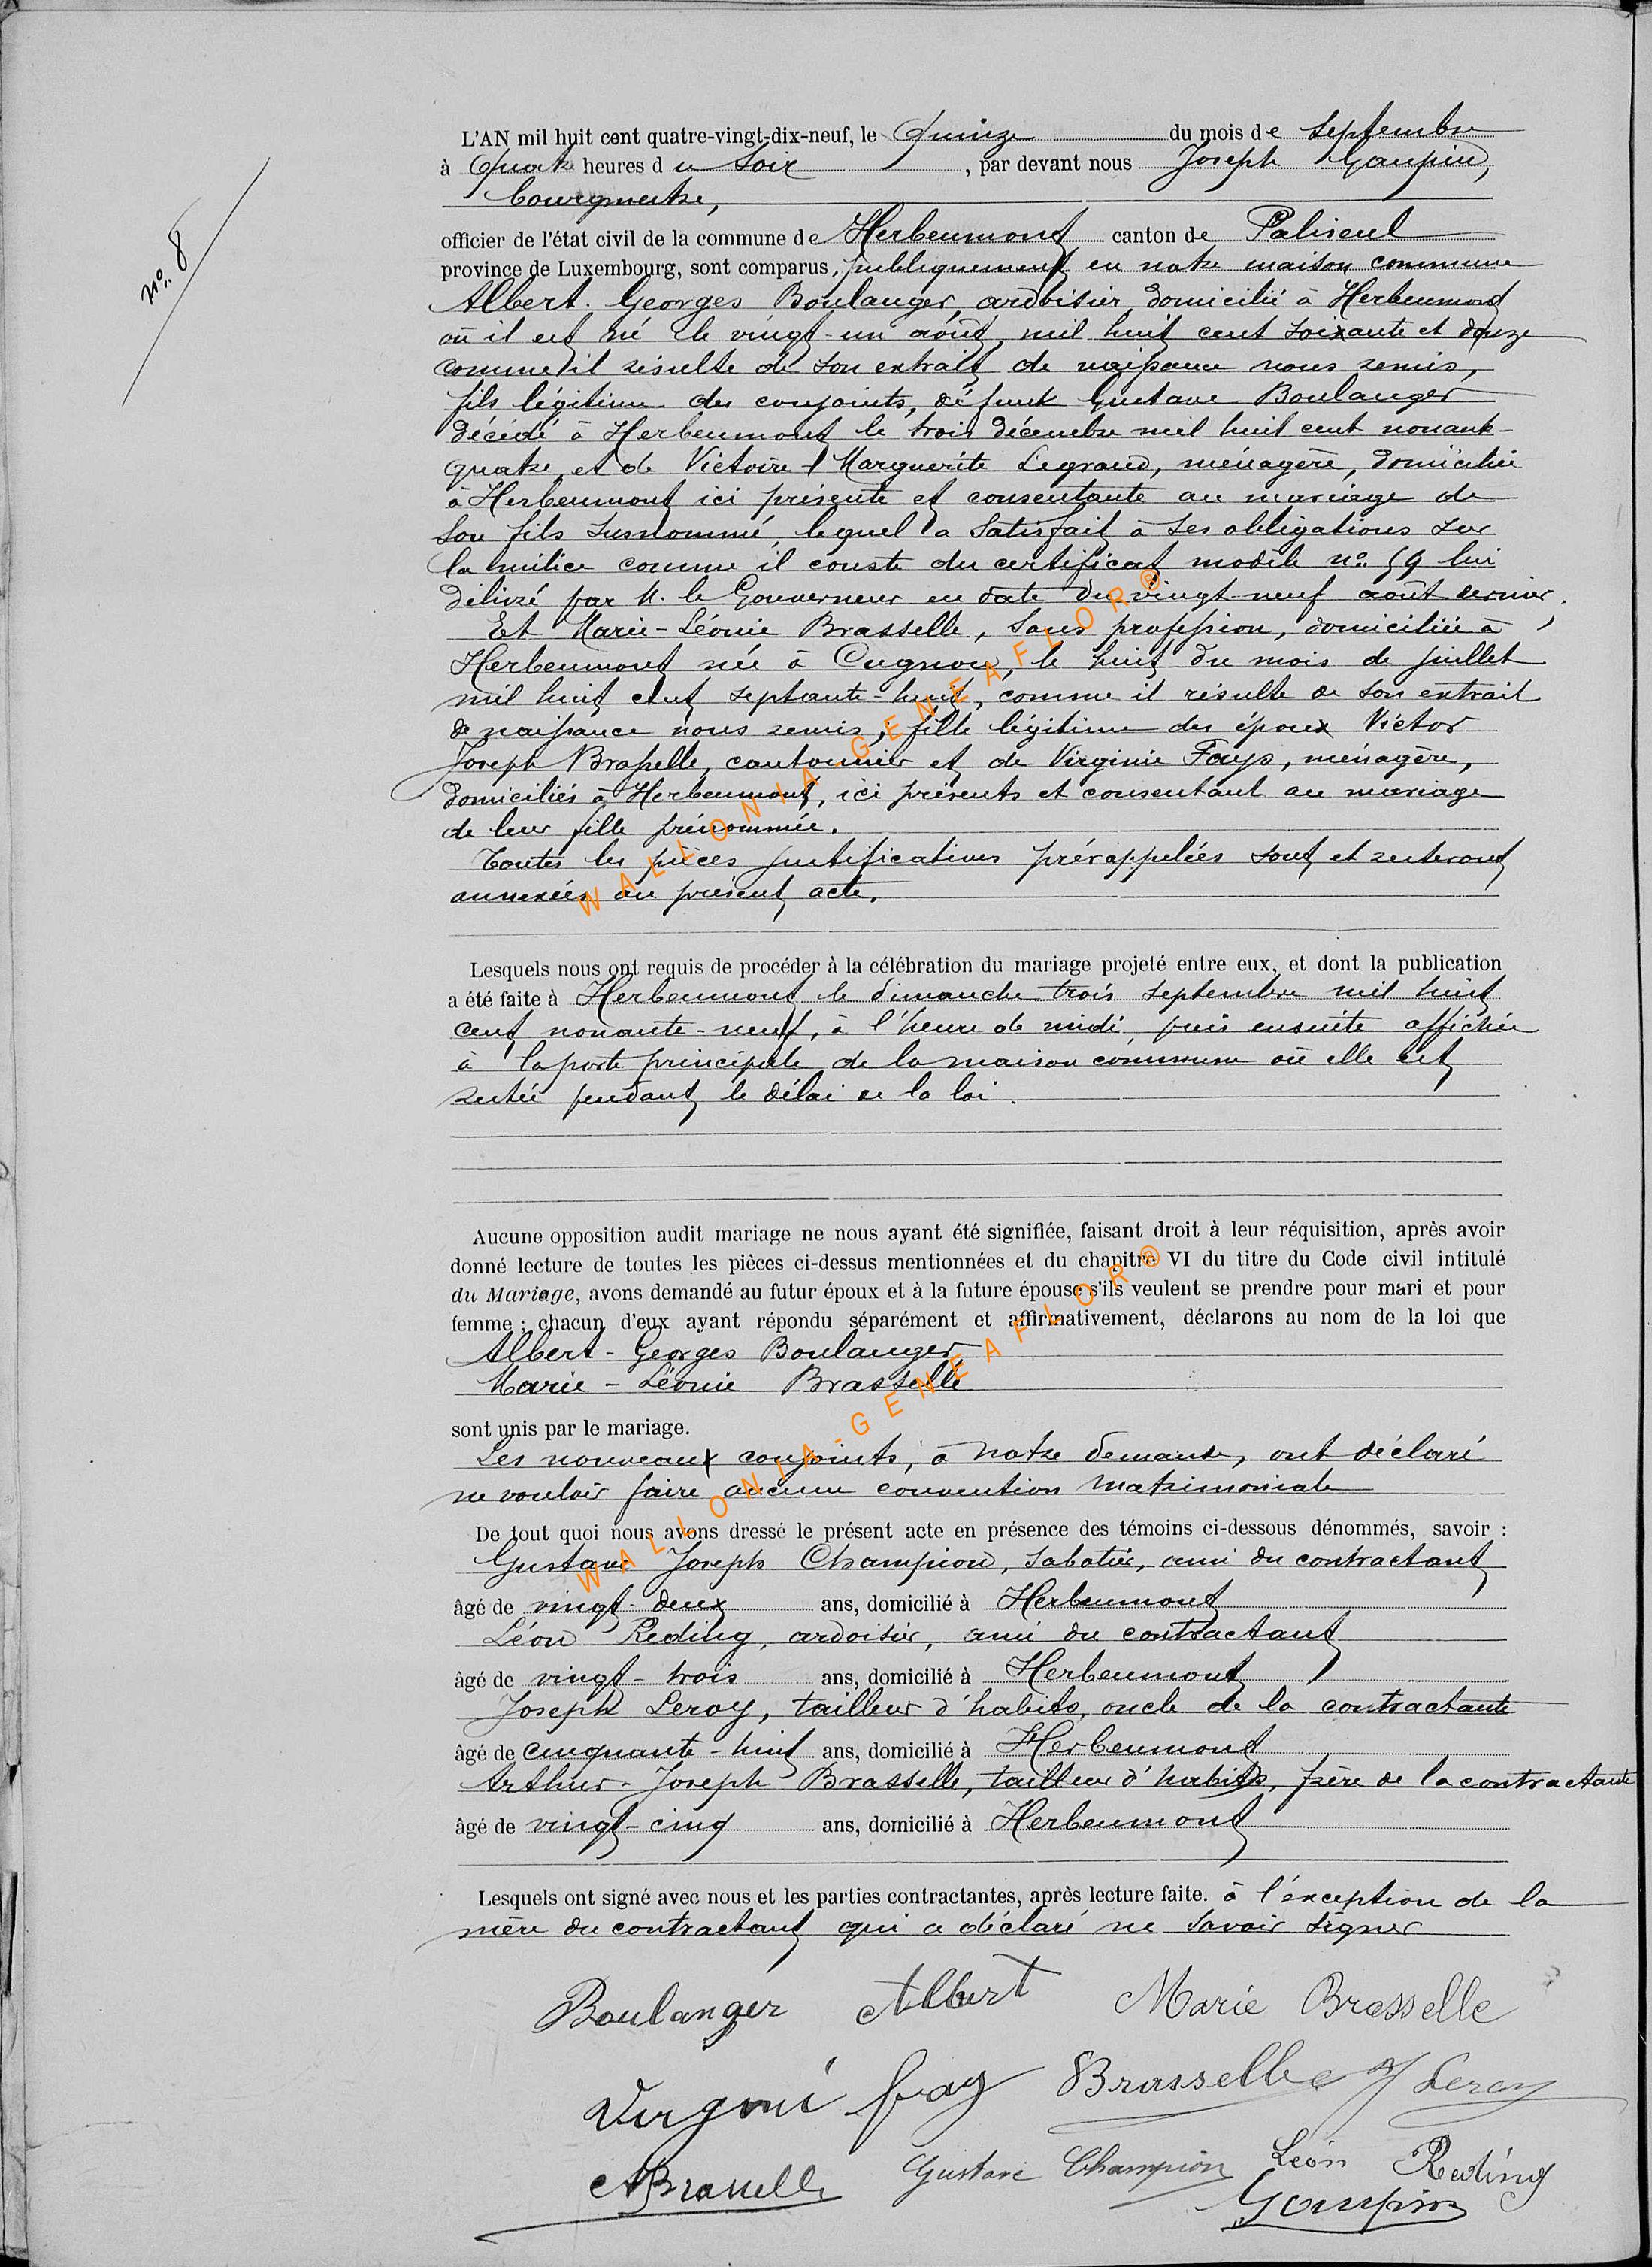 n° 8
L'AN mil huit cent quatre-vingt-dix-neuf, le Quinze du mois de Septembre
à Quatre heures du Soir, par devant nous Joseph Gaupin,
bourgmestre,
officier de l'état civil de la commune de Herbeumont canton de Paliseul
province de Luxembourg, sont comparus, publiquement en notre maison commune
Albert-Georges Boulanger, ardoisier, domicilié à Herbeumont
où il est né le vingt-un août, mil huit cent soixante et douze
comme il résulte de son extrait de naissance nous remis,
fils légitime des conjoints, défunt Gustave Boulanger
décédé à Herbeumont le trois décembre mil huit cent nonante-
quatre, et de Victoire-Marguerite Legrand, ménagère, domiciliée
à Herbeumont ici présente et consentante au mariage de
son fils susnommé, lequel a satisfait à ses obligations sur
la milice comme il conste du certificat modèle n° 59 lui
délivré par M. le Gouverneur en date du vingt-neuf août dernier.
Et Marie-Léonie Brasselle, sans profession, domiciliée à
Herbeumont née à Cugnon, le huit du mois de juillet
mil huit cent septante-huit, comme il résulte de son extrait
de naissance nous remis, fille légitime des époux Victor
Joseph Brasselle, cantonnier et de Virginie Fays, ménagère,
domiciliés à Herbeumont, ici présents et consentant au mariage
de leur fille prénommée.
Toutes les pièces justificatives prérappelées sont et resteront
annexées au présent acte.
Lesquels nous ont requis de procéder à la célébration du mariage projeté entre eux, et dont la publication
a été faite à Herbeumont le dimanche trois septembre mil huit
cent nonante-neuf, à l'heure de midi, puis ensuite affichée
à la porte principale de la maison commune où elle est
restée pendant le délai de la loi.
Aucune opposition audit mariage ne nous ayant été signifiée, faisant droit à leur réquisition, après avoir
donné lecture de toutes les pièces ci-dessus mentionnées et du chapitre VI du titre du Code civil intitulé
du Mariage, avons demandé au futur époux et à la future épouse s'ils veulent se prendre pour mari et pour
femme ; chacun d'eux ayant répondu séparément et affirmativement, déclarons au nom de la loi que
Albert-Georges Boulanger
Marie-Léonie Brasselle
sont unis par le mariage.
Les nouveaux conjoints, à notre demande, ont déclaré
ne vouloir faire aucune convention matrimoniale
De tout quoi nous avons dressé le présent acte en présence des témoins ci-dessous dénommés, savoir :
Gustave Joseph Champion, sabotier, ami du contractant
âgé de vingt-deux ans, domicilié à Herbeumont
Léon Reding, ardoisier, ami du contractant
âgé de vingt-trois ans, domicilié à Herbeumont
Joseph Leroy, tailleur d'habits, oncle de la contractante
âgé de cinquante-huit ans, domicilié à Herbeumont
Arthur-Joseph Brasselle, tailleur d'habits, frère de la contractante
âgé de vingt-cinq ans, domicilié à Herbeumont
Lesquels ont signé avec nous et les parties contractantes, après lecture faite. à l'exception de la
mère du contractant qui a déclaré ne savoir signer
Boulanger Albert Marie Brasselle
Virginie fay Brasselle J Leroy
ABrasselle Gustave Champion Léon Reding
Gaupin
WALLONIA-GENEAFLOR®
WALLONIA-GENEAFLOR®